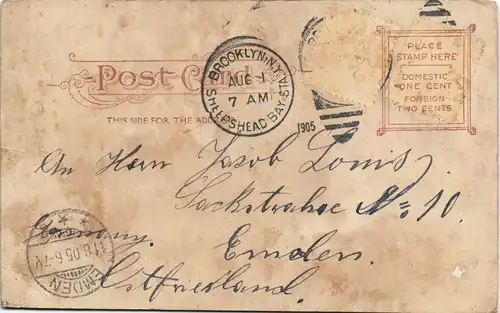 Post Card
PLACE
STAMP HERE
DOMESTIC
ONE CENT
FOREIGN
TWO CENTS
BROOKLYN N.Y.
AUG 1
7 AM
SHEEPSHEAD BAY STA.
1905
THIS SIDE FOR THE ADD
An Herrn Jacob Louis
Sackstrahse No 10.
Germany. Emden.
Ostfriesland.
EMDEN
1.8.05.6-7N